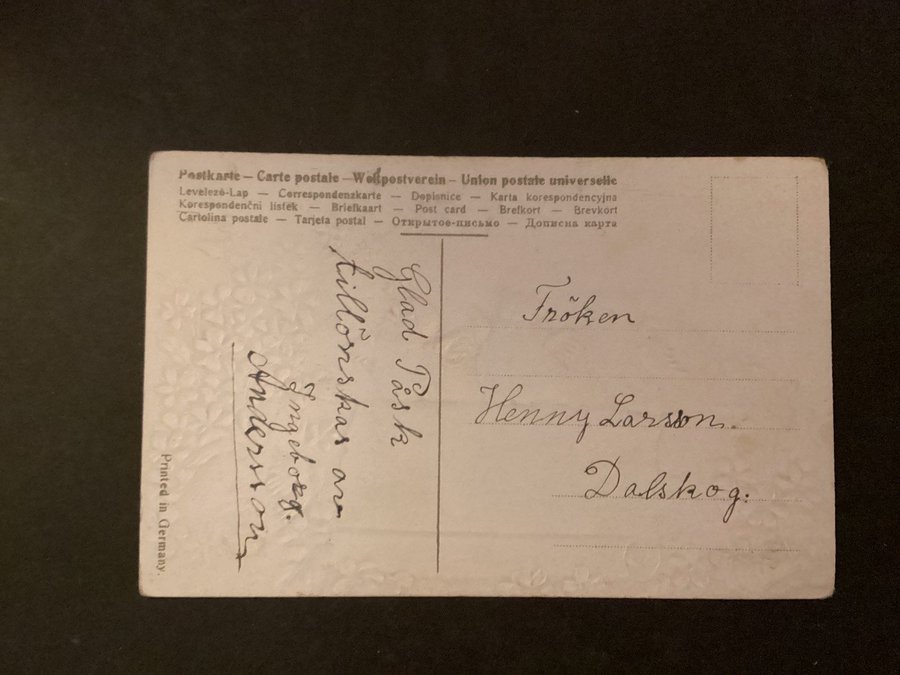 Postkarte — Carte postale — Weltpostverein — Union postale universelle
Levelező-Lap — Correspondenzkarte — Dopisnice — Karta korespondencyjna
Korespondenční lístek — Briefkaart — Post card — Brefkort — Brevkort
Cartolina postale — Tarjeta postal — Открытое-письмо — Дописна карта
Glad Påsk
tillönskas av
Ingeborg.
Andersson
Fröken
Henny Larsson.
Dalskog.
Printed in Germany.